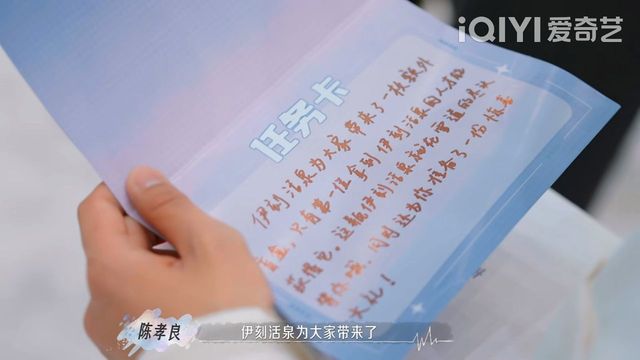 iQIYI 爱奇艺
任务卡
伊刻活泉为大家带来了一枚额外
盲盒，只有第一位拿到伊刻活泉的人才能
获得它。这瓶伊刻活泉
同时还为你准备了一份惊喜
大礼！
陈孝良
伊刻活泉为大家带来了